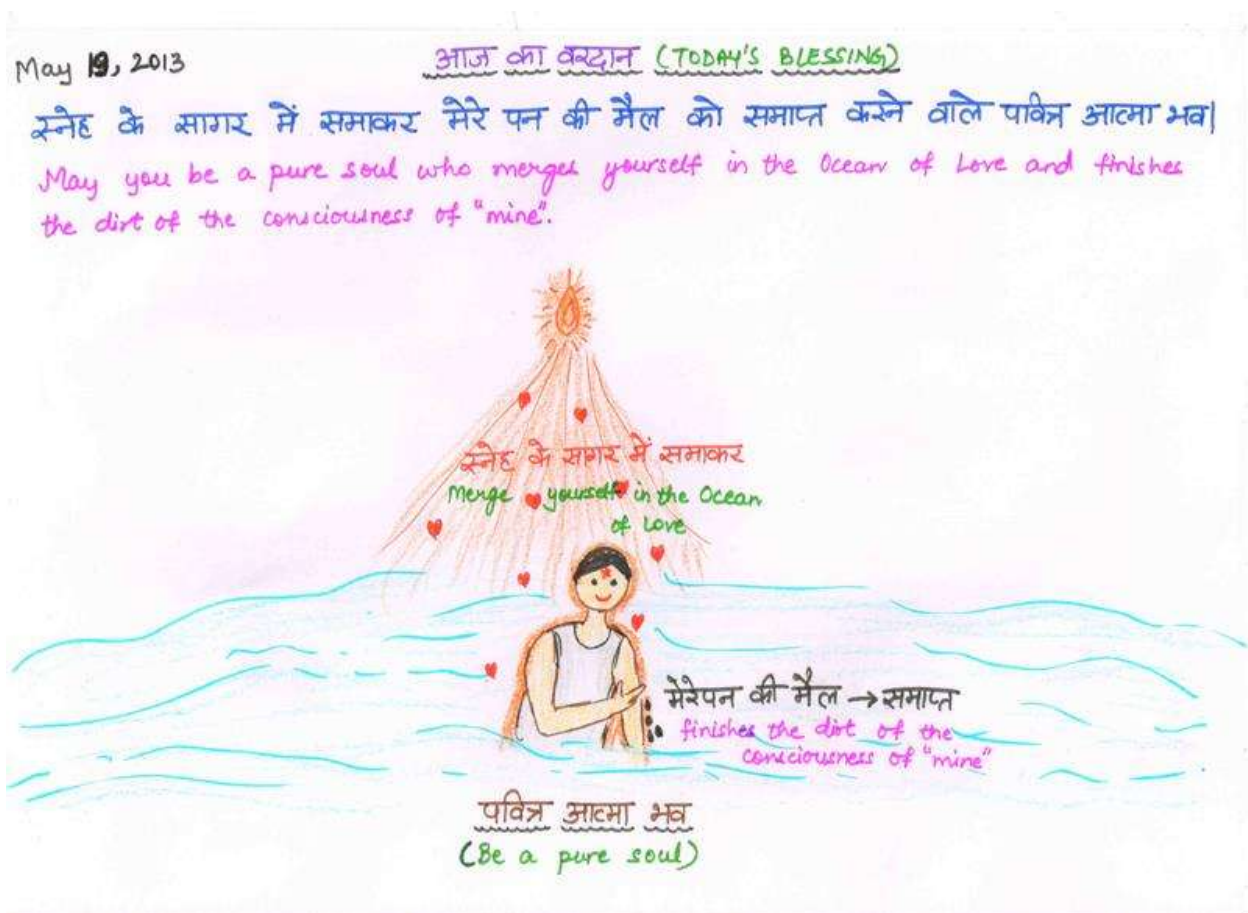 May 19, 2013
आज का वरदान (TODAY'S BLESSING)
स्नेह के सागर में समाकर मेरे पन की मैल को समाप्त करने वाले पवित्र आत्मा भव|
May you be a pure soul who merges yourself in the Ocean of Love and finishes
the dirt of the consciousness of "mine".
स्नेह के सागर में समाकर
Merge yourself in the Ocean
of Love
मेरेपन की मैल → समाप्त
finishes the dirt of the
consciousness of "mine"
पवित्र आत्मा भव
(Be a pure soul)